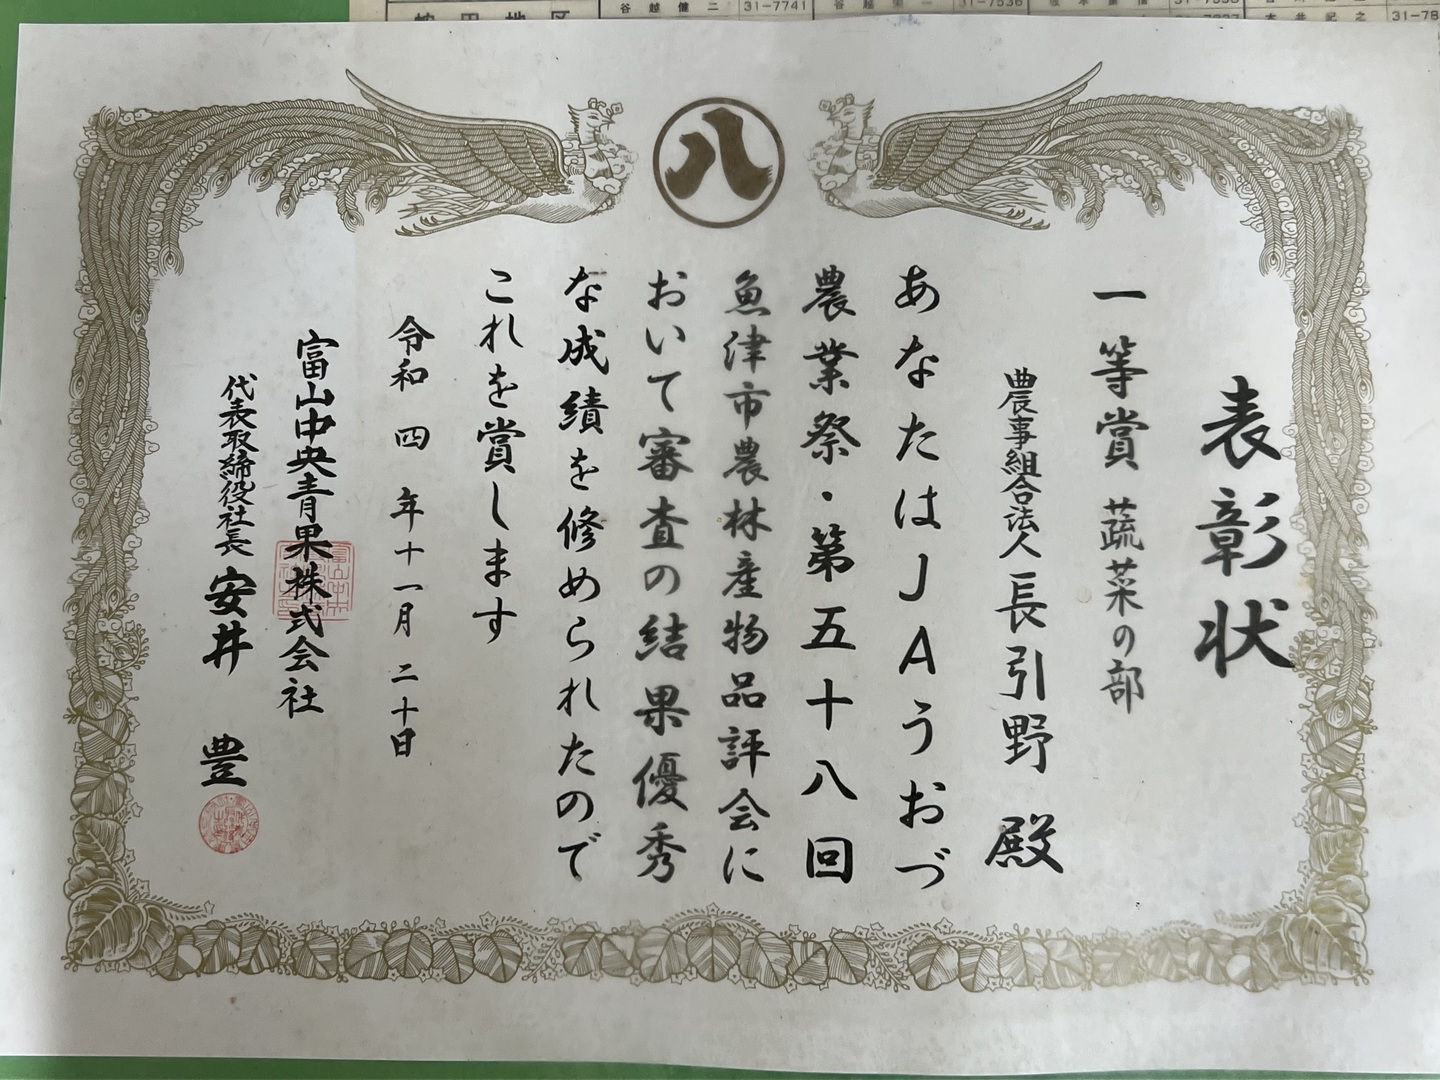 八
表彰状
一等賞 蔬菜の部
農事組合法人長引野 殿
あなたはJAうおづ
農業祭・第五十八回
魚津市農林産物品評会に
おいて審査の結果優秀
な成績を修められたので
これを賞します
令和四年十一月二十日
富山中央青果株式会社
代表取締役社長 安井 豊
谷越健二 31-7741
31-7536